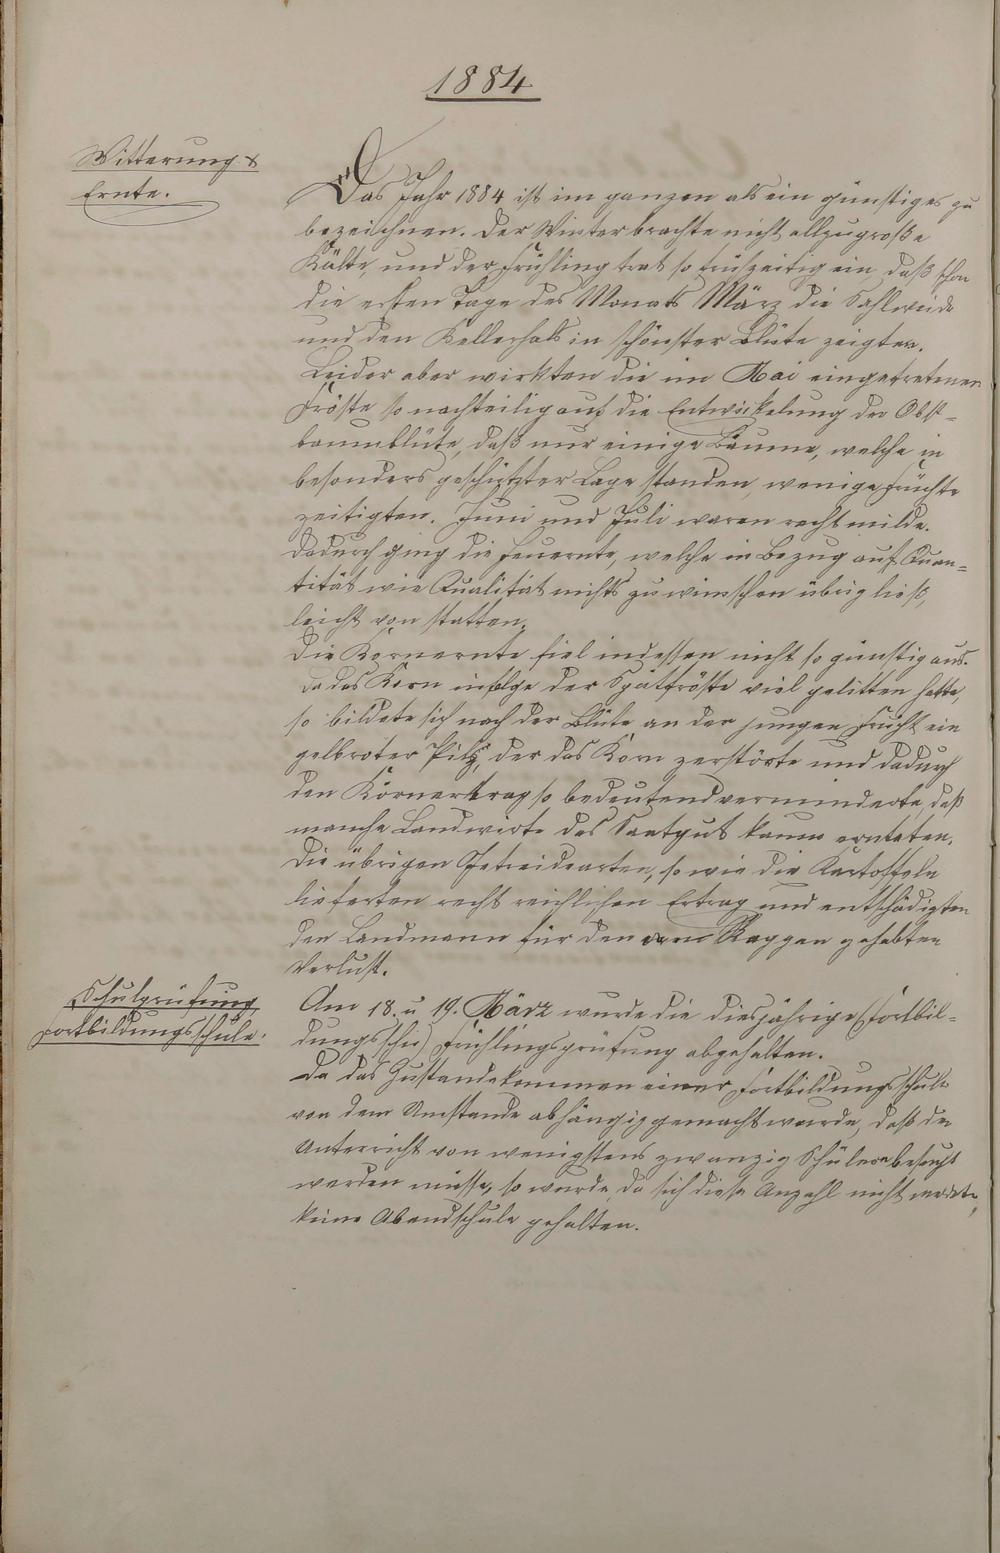 1884
Witterung &
Ernte.
Das Jahr 1884 ist im ganzen als ein günstiges zu
bezeichnen. Der Winter brachte nicht allzugroße
Kälte, und der Frühling trat so frühzeitig ein, daß schon
die ersten Tage des Monats März die Sahlweide
und den Kellerhals in schönster Blüte zeigten.
Leider aber wirkten die im Mai eingetretenen
Fröste so nachteilig auf die Entwickelung der Obst-
baumblüte, daß nur einige Bäume, welche in
besonders geschützter Lage standen, wenige Früchte
zeitigten. Juni und Juli waren recht milde.
Dadurch ging die Heuernte, welche in Bezug auf Quan-
tität wie Qualität nichts zu wünschen übrig ließ,
leicht von statten.
Die Kornernte fiel indessen nicht so günstig aus.
Da das Korn infolge der Spätfröste viel gelitten hatte,
so bildete sich nach der Blüte an der jungen Frucht ein
gelbroter Pilz, der das Korn zerstörte und dadurch
den Körnertrag so bedeutend verminderte, daß
manche Landwirte das Saatgut kaum ernteten.
Die übrigen Getreidearten, so wie die Kartoffeln
lieferten recht reichlichen Ertrag und entschädigten
den Landmann für den am Roggen gehabten
Verlust.
Schulprüfung,
Fortbildungsschule.
Am 18. u. 19. März wurde die diesjährige (Fortbil-
dungsschu) Frühlingsprüfung abgehalten.
Da das Zustandekommen einer Fortbildungsschule
von dem Umstande abhängig gemacht wurde, daß der
Unterricht von wenigstens zwanzig Schülern besucht
werden müsse, so wurde, da sich diese Anzahl nicht meldete,
keine Abendschule gehalten.